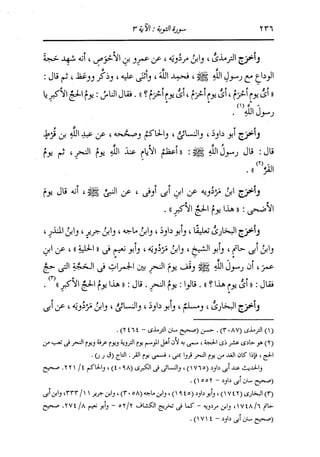 ٢٣٦ سورة التوبة : الآية ٣
وأخرَج الترمذىُّ ، وابنُ مردُويَه ، عن عمرِو بنِ الأحْوَصِ ، أنه شهِد حَجةَ
الوداعِ مع رسولِ اللَّهِ ﷺ ، فحمِد اللَّهَ ، وأثنَى عليه ، وذكَّر ووعَظ ، ثم قال :
« أىُّ يومٍ أحْرَمُ ، أىُّ يومٍ أحْرَمُ ، أىُّ يومٍ أحْرَمُ ؟ » . فقال الناسُ : يومُ الحجِّ الأكبرِ يا
رسولَ اللَّهِ (١) .
وأخرَج أبو داودَ ، والنسائىُّ ، والحاكمُ وصحَّحه ، عن عبدِ اللَّهِ بنِ قُرْطٍ
قال : قال رسولُ اللَّهِ ﷺ : « أعظمُ الأيامِ عندَ اللَّهِ يومُ النحرِ ، ثم يومُ
القَرِّ (٢) » .
وأخرَج ابنُ مَرْدُويَه عن ابنِ أبى أوفَى ، عن النبىِّ ﷺ ، أنه قال يومَ
الأضحى : « هذا يومُ الحجِّ الأكبرِ » .
وأخرَج البخارىُّ تعليقًا ، وأبو داودَ ، وابنُ ماجه ، وابنُ جريرٍ ، وابنُ المنذرِ ،
وابنُ أبى حاتمٍ ، وأبو الشيخِ ، وابنُ مَرْدُويَه ، وأبو نعيمٍ فى « الحليةِ » ، عن ابنِ
عمرَ ، أن رسولَ اللَّهِ ﷺ وقَف يومَ النحرِ بينَ الجمراتِ فى الحَجَّةِ التى حجَّ
فقال : « أىُّ يومٍ هذا ؟ » . قالوا : يومُ النحرِ . قال : « هذا يومُ الحجِّ الأكبرِ » (٣) .
وأخرَج البخارىُّ ، ومسلمٌ ، وأبو داودَ ، والنسائىُّ ، وابنُ مَرْدُويَه ، عن أبى
(١) الترمذى (٣٠٨٧) . حسن (صحيح سنن الترمذى - ٢٤٦٤) .
(٢) هو حادى عشر ذى الحجة ، سمى به لأن أهل الموسم يوم التروية ويوم عرفة ويوم النحر فى تعب من
الحج ، فإذا كان الغد من يوم النحر قروا بمنى ، فسمى يوم القر . التاج (ق ر ر) .
والحديث عند أبى داود (١٧٦٥) ، والنسائى فى الكبرى (٤٠٩٨) ، والحاكم ٤/ ٢٢١. صحيح
(صحيح سنن أبى داود - ١٥٥٢) .
(٣) البخارى (١٧٤٢) ، وأبو داود (١٩٤٥) ، وابن ماجه (٣٠٥٨) ، وابن جرير ١١/ ٣٣٣، وابن أبى
حاتم ٦/ ١٧٤٨، وابن مردويه - كما فى تخريج الكشاف ٢/ ٥٢ - وأبو نعيم ٨/ ٢٧٤. صحيح
(صحيح سنن أبى داود - ١٧١٤) .